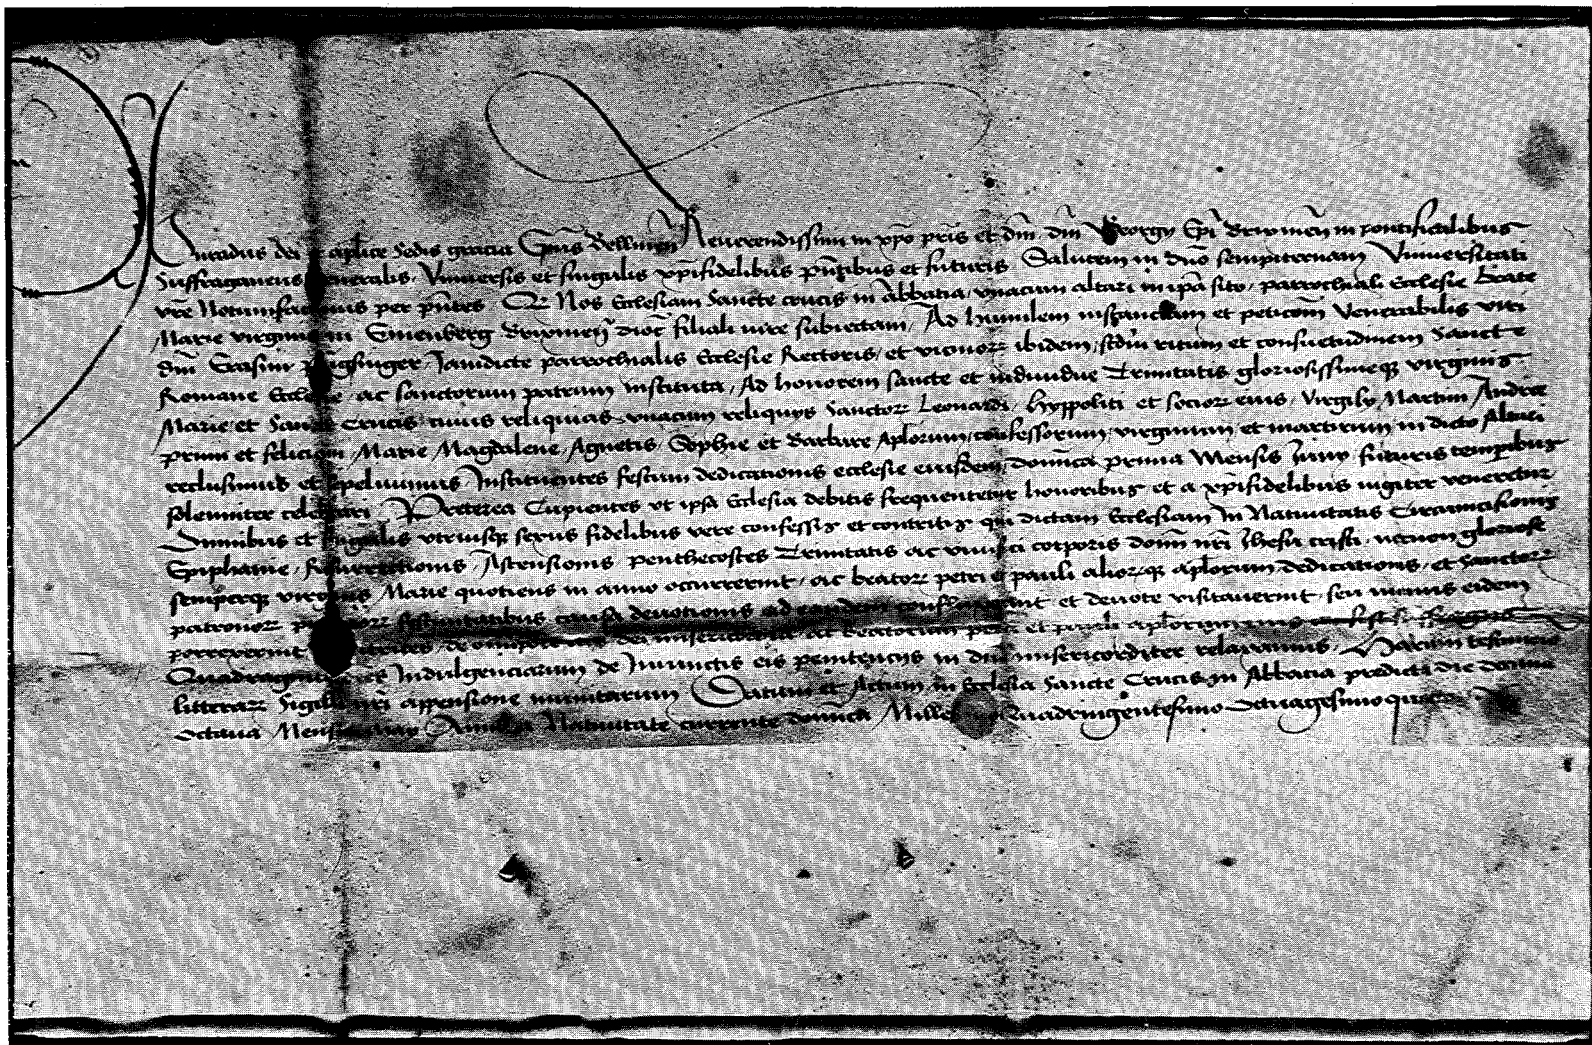 dei et aplice Sedis gracia Epūs Bellineñ Reuerendissimi in xpo pris et dni dni Georgy Epi Brixineñ in pontificalibus
Suffraganeus generalis Vniuersis et singulis xpifidelibus pntibus et futuris Salutem in dno sempiternam Vniuersitati
vre Notumfacimus per pntes Nos Ecclesiam Sancte crucis in Abbatia vnacum altari in ipa sito parrochiali Ecclesie beate
Marie virginis in Brixineñ dioc filiali iure subiectam Ad humilem instanciam et peticom Venerabilis viri
dni Erasmi Jamdicte parrochialis Ecclesie Rectoris et vicinor ibidem scdm ritum et consuetudinem Sancte
Romane Ecclesie ac sanctorum patrum instituta Ad honorem sancte et indiuidue Trinitatis gloriosissimeq virginis
Marie et Sancte Crucis cuius reliquias vnacum reliquys Sanctor Leonardi Hyppoliti et socior eius Virgily Martini Andree
primi et feliciani Marie Magdalene Agnetis Sophie et Barbare Aplorum confessorum virginum et martirum in dicto Altari
reclusimus et sepeliuimus Instituentes festum dedicationis ecclesie eiusdem domica prima Mensis futuris temporibus
solenniter celebrari Preterea Cupientes vt ipsa Ecclesia debitis frequentetur honoribus et a xpifidelibus iugiter veneretur
Omnibus et singulis vtriusq sexus fidelibus vere confessis et contritis qui dictam Ecclesiam In Natiuitatis Circumcisionis
Epiphanie Resurrectionis Ascensionis penthecostes Trinitatis ac viuifici corporis domi nri Jhesu cristi necnon gloriose
semperq virginis Marie quotiens in anno occurrerint ac beator petri et pauli aliorq aplorum dedicationis et Sanctor
patronor festiuitatibus causa deuotionis ad eandem et deuote visitauerint seu manus eidem
porrexerint de dei misericordia ac beatorum petri et pauli aplorum
Quadraginta dies Indulgenciarum de Iniunctis eis penitencys in dno misericorditer relaxamus Harum testimonio
litterar Sigilli nri appensione munitarum Datum et Actum in Ecclesia Sancte Crucis in Abbatia predicta die decima
octaua Mensis Natiuitate currente domica Millesimo Quadringentesimo Octuagesimo